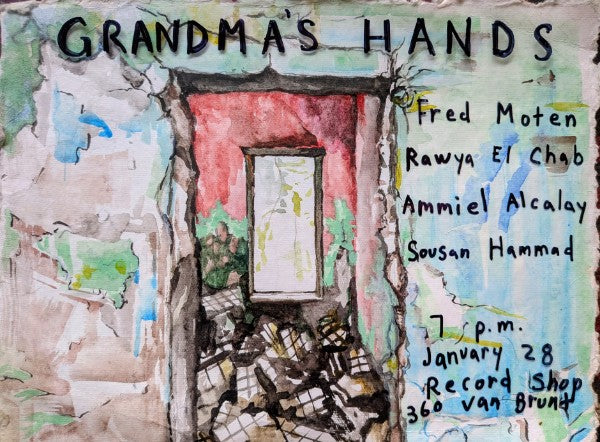 GRANDMA'S HANDS
Fred Moten
Rawya El Chab
Ammiel Alcalay
Sousan Hammad
7 p.m.
January 28
Record Shop
360 Van Brunt